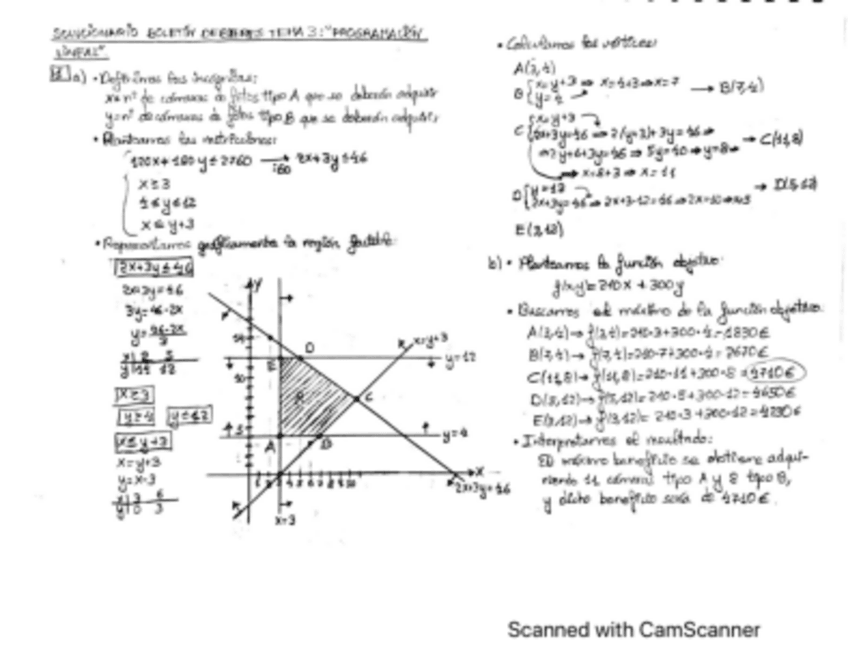 SOLUCIONARIO BOLETÍN DEBERES TEMA 3: "PROGRAMACIÓN
LINEAL"
a) • Definimos las incógnitas:
x=nº de cámaras de fotos tipo A que se deberán adquirir
y=nº de cámaras de fotos tipo B que se deberán adquirir
• Planteamos las restricciones:
120x+180y≤2760 → 2x+3y≤46
:60
x≥3
4≤y≤12
x≤y+3
• Representamos gráficamente la región factible:
2x+3y≤46
2x+3y=46
3y=46-2x
y=46-2x/3
x| 2 5
y|14 12
x≥3
y≥4 y≤12
x≤y+3
x=y+3
y=x-3
x|3 6
y|0 3
y
D
x=y+3
E
y=12
10
R
C
A
B
y=4
x
2x+3y=46
x=3
• Calculamos los vértices:
A(3,4)
B{x=y+3 ⇒ x=4+3⇒x=7
y=4
→ B(7,4)
C{x=y+3
2x+3y=46 ⇒ 2(y+3)+3y=46 ⇒
⇒2y+6+3y=46 ⇒ 5y=40 ⇒ y=8
→ C(11,8)
⇒ x=8+3 ⇒ x=11
D{y=12
2x+3y=46 ⇒ 2x+3·12=46 ⇒ 2x=10 ⇒ x=5
→ D(5,12)
E(3,12)
b) • Planteamos la función objetivo:
f(x,y)=210x+300y
• Buscamos el máximo de la función objetivo:
A(3,4)→ f(3,4)=210·3+300·4=1830€
B(7,4)→ f(7,4)=210·7+300·4=2670€
C(11,8)→ f(11,8)=210·11+300·8=4710€
D(5,12)→ f(5,12)=210·5+300·12=4650€
E(3,12)→ f(3,12)=210·3+300·12=4230€
• Interpretamos el resultado:
El máximo beneficio se obtiene adqui-
riendo 11 cámaras tipo A y 8 tipo B,
y dicho beneficio será de 4710€.
Scanned with CamScanner